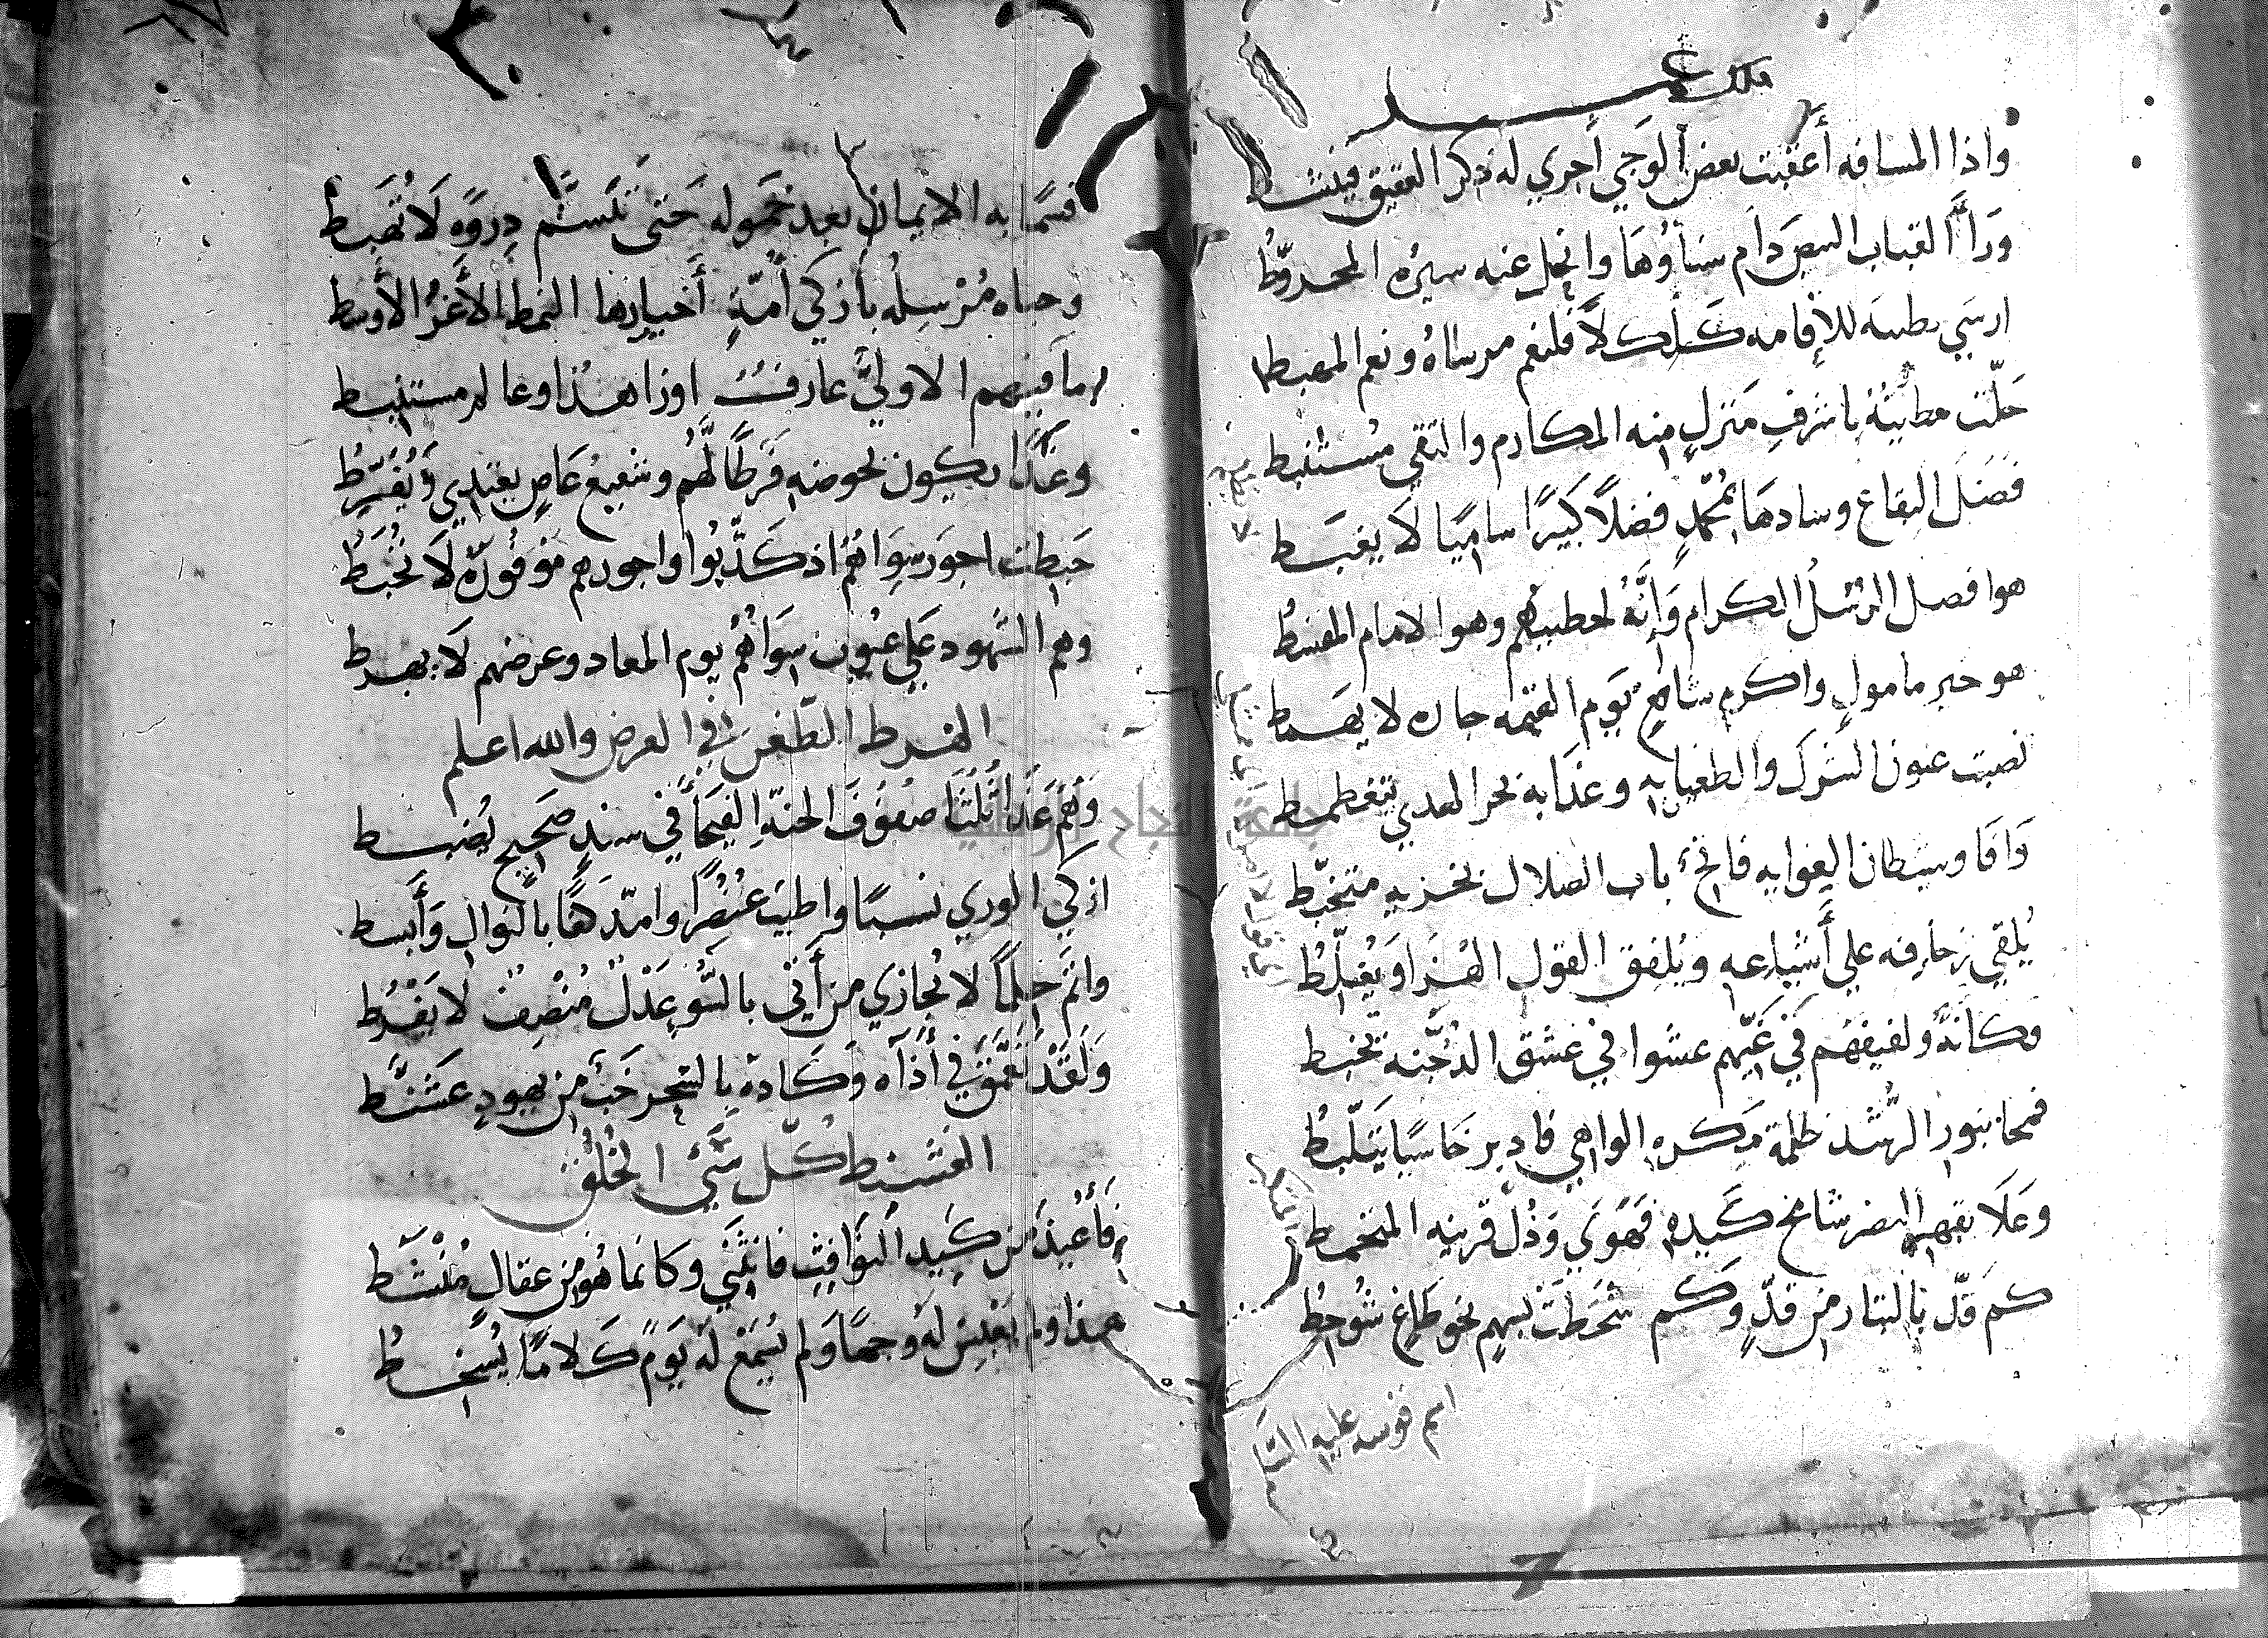 واذا المسافه أعقبت بعض الوجي أجري له ذكر العقيق فينشط
ورأ القباب البيض دام سناؤها وانجل عنه سيره المخروّط
ارسي بطيبه للإقامه كلكلاً فلنعم مرساهُ ونعم المهبط
حلّت مطيته باشرف منزلٍ منه المكارم والتقي مستنبط
فضل البقاع وسادها بمحمدٍ فضلاً كبيرًا ساميًا لا يغبط
هو افضل الرسل الكرام وإنّه لخطيبهم وهو الامام المقسط
هو خير مامولٍ واكرم شافعٍ يوم القيمه جاره لا يهمط
نصبت عيون الشرك والطغيا به وعذابه نحر الهدي تتغطمط
وافا وشيطان الغوايه فاتح باب الضلال بخزيه متخبّط
يلقي زخارفه علي أشياعه ويلفق القول الهزا ويغلّط
وكانه ولفيفهم في غيّهم عشوا في غسق الدجنّه تخبط
فمحا بنور الرشد ظلمة مكره الواهي فادبر خاسيًا يتلبّط
وعلا بقهر النصر شامخ كيده فهوي وذل قرينه المتخمط
كم قلّ بالبتار من قدٍّ وكم شحطت بسهمٍ نحو طاغ شوحط
اسم قوسه عليه السلم
فسما به الايمان بعد خموله حتي تسنّم دروةً لا تهبط
وحباه مُرْسِلُه بأزكي أمّةٍ أخيارها النمط الأغر الأوسط
ما فيهم الا وليّ عارف او زاهد او عالم مستنبط
وغدًا يكون بحوضه فرطًا لهم وشفيع عاصٍ يعتدي ويُفرّط
حبطت اجور سواهم اذ كذّبوا واجورهم موفورة لا تحبط
وهم الشهود علي عيوب سواهم يوم المعاد وعرضهم لا يهرط
الهرط الطعن في العرض والله اعلم
وهم غدا ثلثا صفوف الجنة الفيحا في سندٍ صحيح يضبط
ازكي الوري نسبًا واطيب عنصرًا وامدها بالنوال وأبسط
واتم حلمًا لا يجازي من أتي بالسّوء عدل منصف لا يفرط
ولقد تعمق في أذاه وكاده بالسحر خبٌّ من يهودٍ عشنّط
العشنط كل سيّئ الخلق
فأعيذ من كيد النوافث فانثني وكانما هو من عقالٍ منشط
هذا ولم يعبس له وجهًا ولم يسمع له يوم كلامًا يسخط